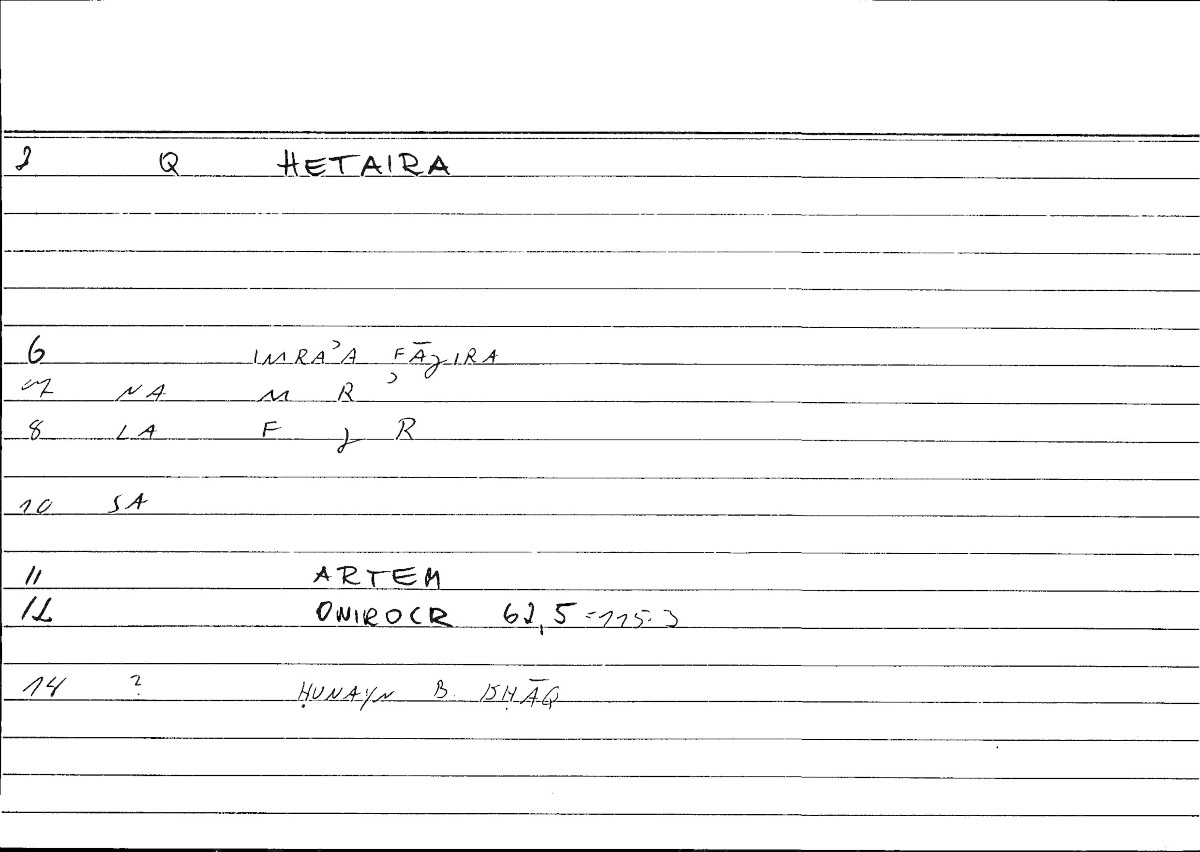 2 Q HETAIRA
6 IMRAʾA FĀǧIRA
7 NA M R ʾ
8 LA F ǧ R
10 SA
11 ARTEM
12 ONIROCR 62,5 = 115.3
14 ? ḤUNAYN B. ISḤĀQ